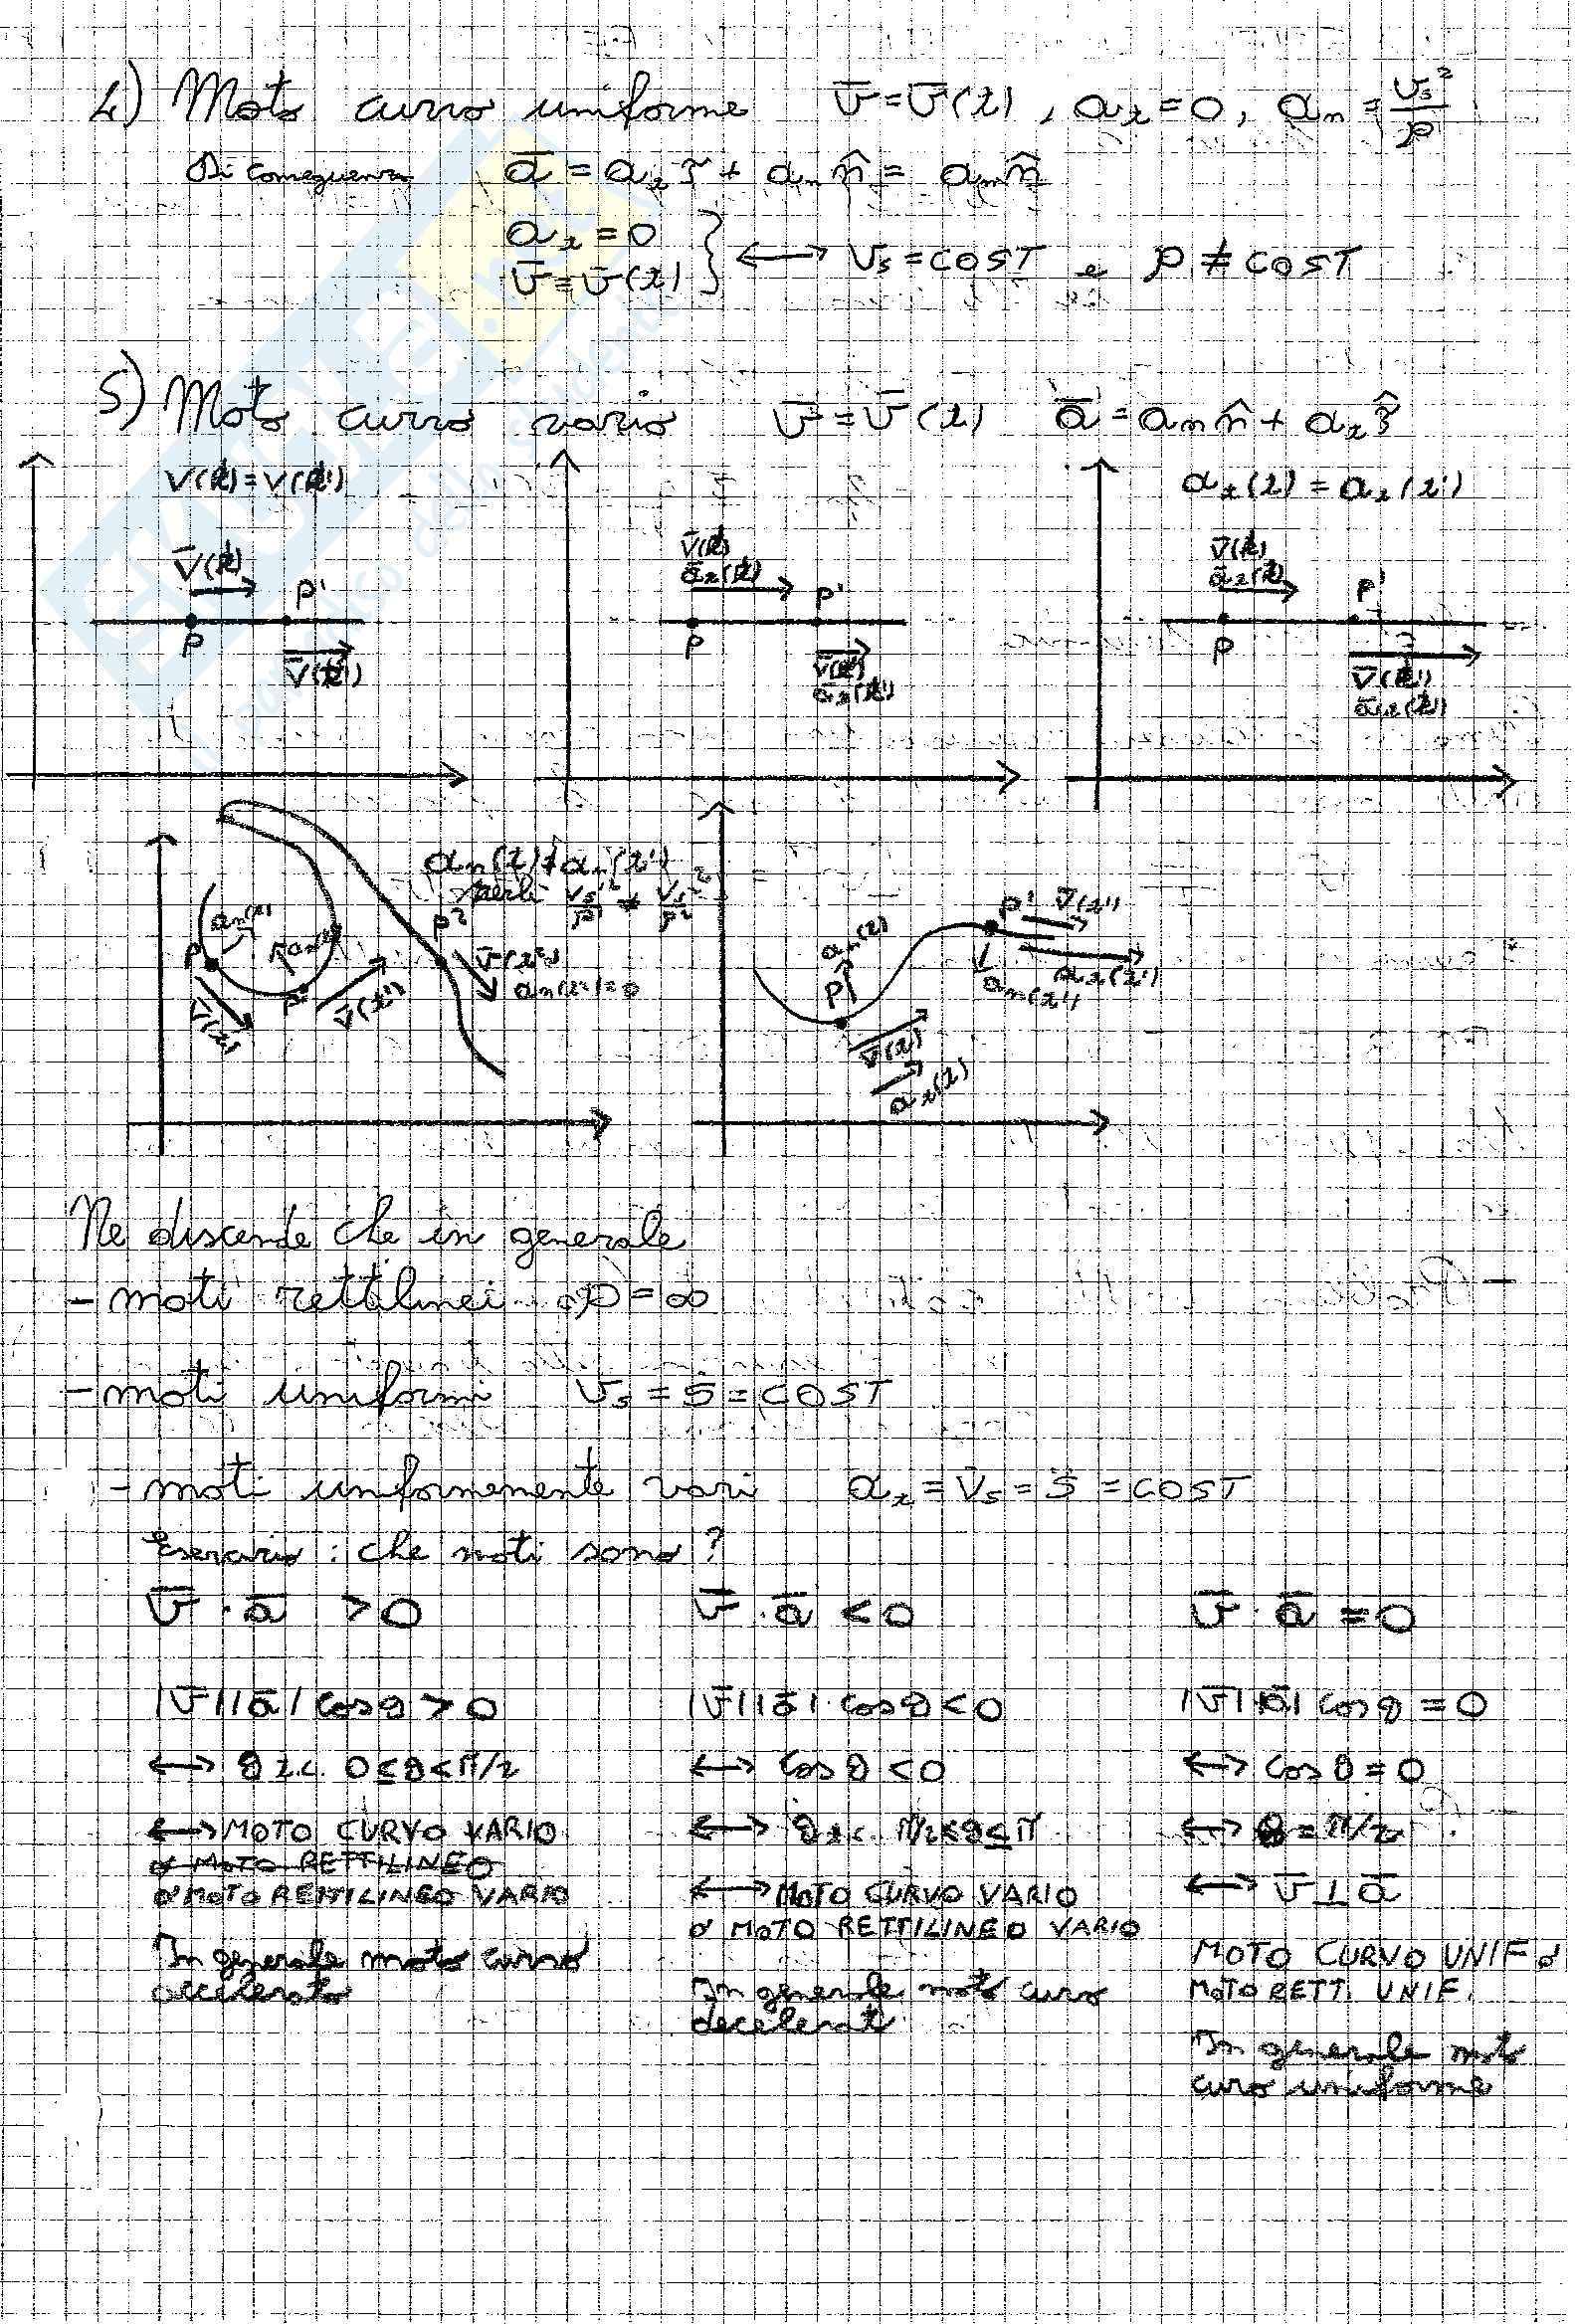 4) Moto curvo uniforme v̄ = v̄(t), a_t = 0, a_n = v_s²/ρ
Di conseguenza ā = a_t τ̂ + a_n n̂ = a_n n̂
a_t = 0
v̄ = v̄(t) } ⟷ v_s = COST e ρ ≠ COST
5) Moto curvo vario v̄ = v̄(t) ā = a_n n̂ + a_t τ̂
v(t) = v(t')
v̄(t)
P P'
v̄(t')
v̄(t)
ā_t(t)
P P'
v̄(t')
ā_t(t')
a_t(t) = a_t(t')
v̄(t)
ā_t(t)
P P'
v̄(t')
ā_t(t')
a_n(t) ≠ a_n(t')
v̄(t')
P
P'
P²
a_n(t)
v̄(t)
P
a_n(t)
v̄(t)
a_t(t)
P' v̄(t')
a_t(t')
a_n(t')
Ne discende che in generale
- moti rettilinei ρ = ∞
- moti uniformi v_s = ṡ = COST
- moti uniformemente vari a_t = v̇_s = s̈ = COST
Esercizio : che moti sono?
v̄ · ā > 0
|v̄||ā| cos θ > 0
⟷ θ t.c. 0 ≤ θ < π/2
⟷ MOTO CURVO VARIO
o MOTO RETTILINEO
o MOTO RETTILINEO VARIO
In generale moto curvo
accelerato
v̄ · ā < 0
|v̄||ā| · cos θ < 0
⟷ cos θ < 0
⟷ θ t.c. π/2 < θ ≤ π
⟷ MOTO CURVO VARIO
o MOTO RETTILINEO VARIO
In generale moto curvo
decelerat
v̄ · ā = 0
|v̄|·|ā| cos θ = 0
⟷ cos θ = 0
⟷ θ = π/2
⟷ v̄ ⊥ ā
MOTO CURVO UNIF o
MOTO RETT. UNIF.
In generale moto
curvo uniforme